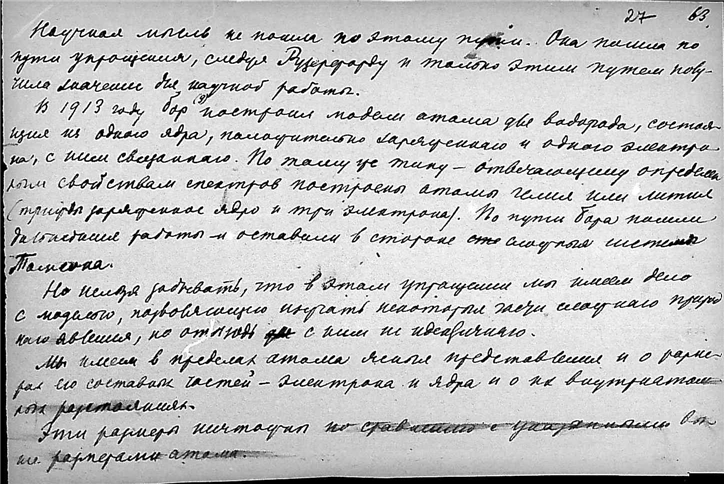 27 63
Научная мысль не пошла по этому пути. Она пошла по
пути упрощения, следуя Рузерфорду и только этим путем полу-
чила значение для научной работы.
В 1913 году Бор (3) построил модели атома для водорода, состоя-
щия из одного ядра, положительно заряженнаго и одного электро
на, с ним связаннаго. По тому же типу – отвечающему определен
ным свойствам спектров построены атомы гелия или лития
(трижды заряженное ядро и три электрона). По пути Бора пошли
дальнейшия работы и оставили в стороне сложныя системы
Томсона.
Но нельзя забывать, что в этом упрощении мы имеем дело
с моделью, позволяющею изучать некоторыя части сложнаго природ
наго явления, но отнюдь с ним не идентичнаго.
Мы имеем в пределах атома ясныя представления и о разме-
рах его составных частей – электрона и ядра и о их внутриатом
ных разстояниях.
Эти размеры ничтожны по сравнению с указанными вы-
ше размерами атома.